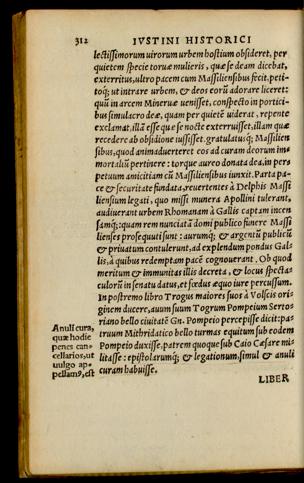 312 IVSTINI HISTORICI
lectissimorum uirorum urbem hostium obsideret, per
quietem specie toruæ mulieris, quæ se deam dicebat,
exterritus, ultro pacem cum Massiliensibus fecit. peti-
toq; ut intrare urbem, & deos eorū adorare liceret:
quū in arcem Mineruæ uenisset, conspecto in portici-
bus simulacro deæ, quam per quietē uiderat, repente
exclamat, illā esse quæ se nocte exterruisset, illam quæ
recedere ab obsidione iussisset. gratulatusq; Massilien
sibus, quod animaduerteret eos ad curam deorum im-
mortaliū pertinere: torque aureo donata dea, in per
petuum amicitiam cū Massiliensibus iunxit. Parta pa-
ce & securitate fundata, reuertentes à Delphis Massi
liensium legati, quo missi munera Apollini tulerant,
audiuerant urbem Rhomanam à Gallis captam incen
samq;: quam rem nunciatā domi publico funere Massi
lienses prosequuti sunt: aurumq; & argentū publicū
& priuatum contulerunt, ad explendum pondus Gal-
lis, à quibus redemptam pacē cognouerant. Ob quod
meritum & immunitas illis decreta, & locus specta-
culorū in senatu datus, et fœdus æquo iure percussum.
In postremo libro Trogus maiores suos à Volscis ori-
ginem ducere, auum suum Trogum Pompeium Serto-
riano bello ciuitatē Gn. Pompeio percepisse dicit: pa-
truum Mithridatico bello turmas equitum sub eodem
Pompeio duxisse. patrem quoque sub Caio Cæsare mi-
litasse: epistolarumq; & legationum, simul & anuli
curam habuisse.
Anuli cura,
quæ hodie
penes can-
cellarios, ut
uulgo ap-
pellam9, est
LIBER